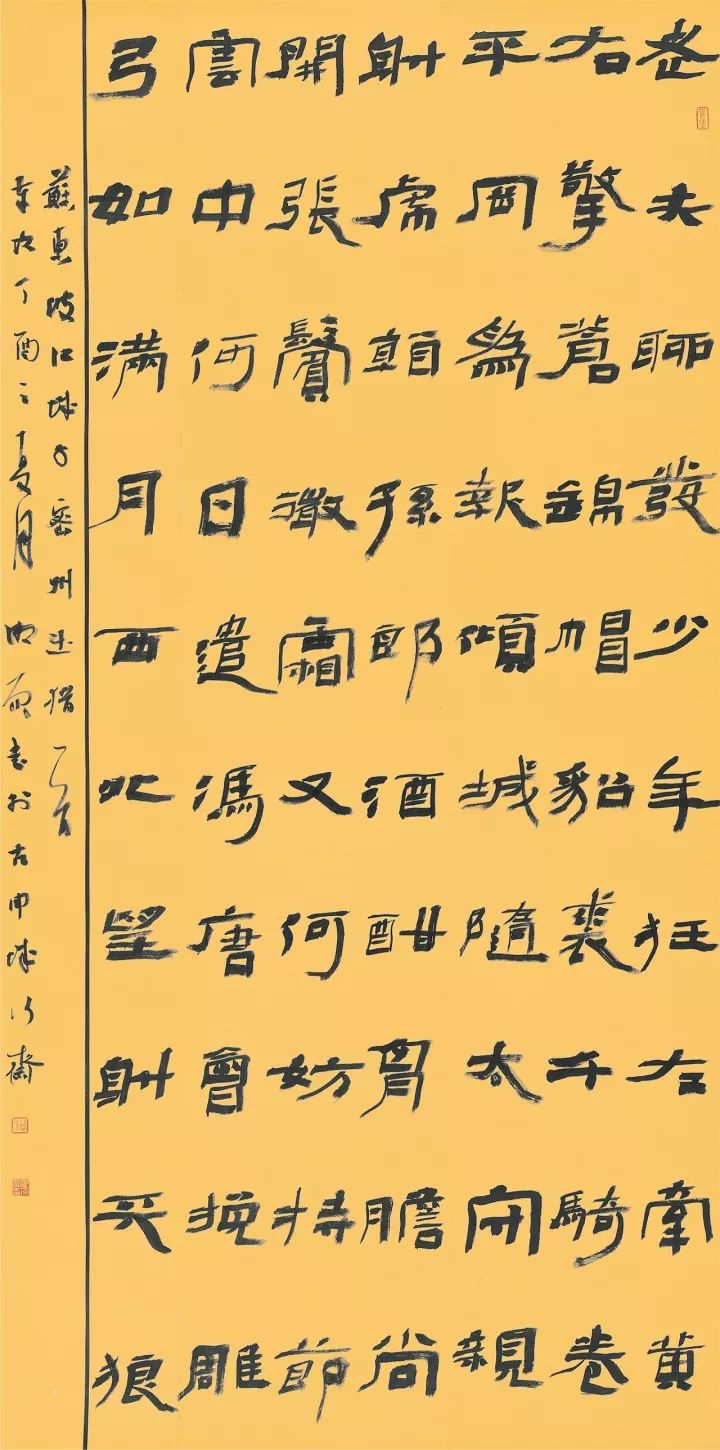 老夫聊發少年狂左牽黄
右擎蒼錦帽貂裘千騎卷
平岡爲報傾城隨太守親
射虎看孫郎酒酣胷膽尚
開張鬢微霜又何妨持節
雲中何日遣馮唐會挽雕
弓如滿月西北望射天狼
蘇東坡江城子密州出獵一首
歲次丁酉之夏月書於古申城行齋